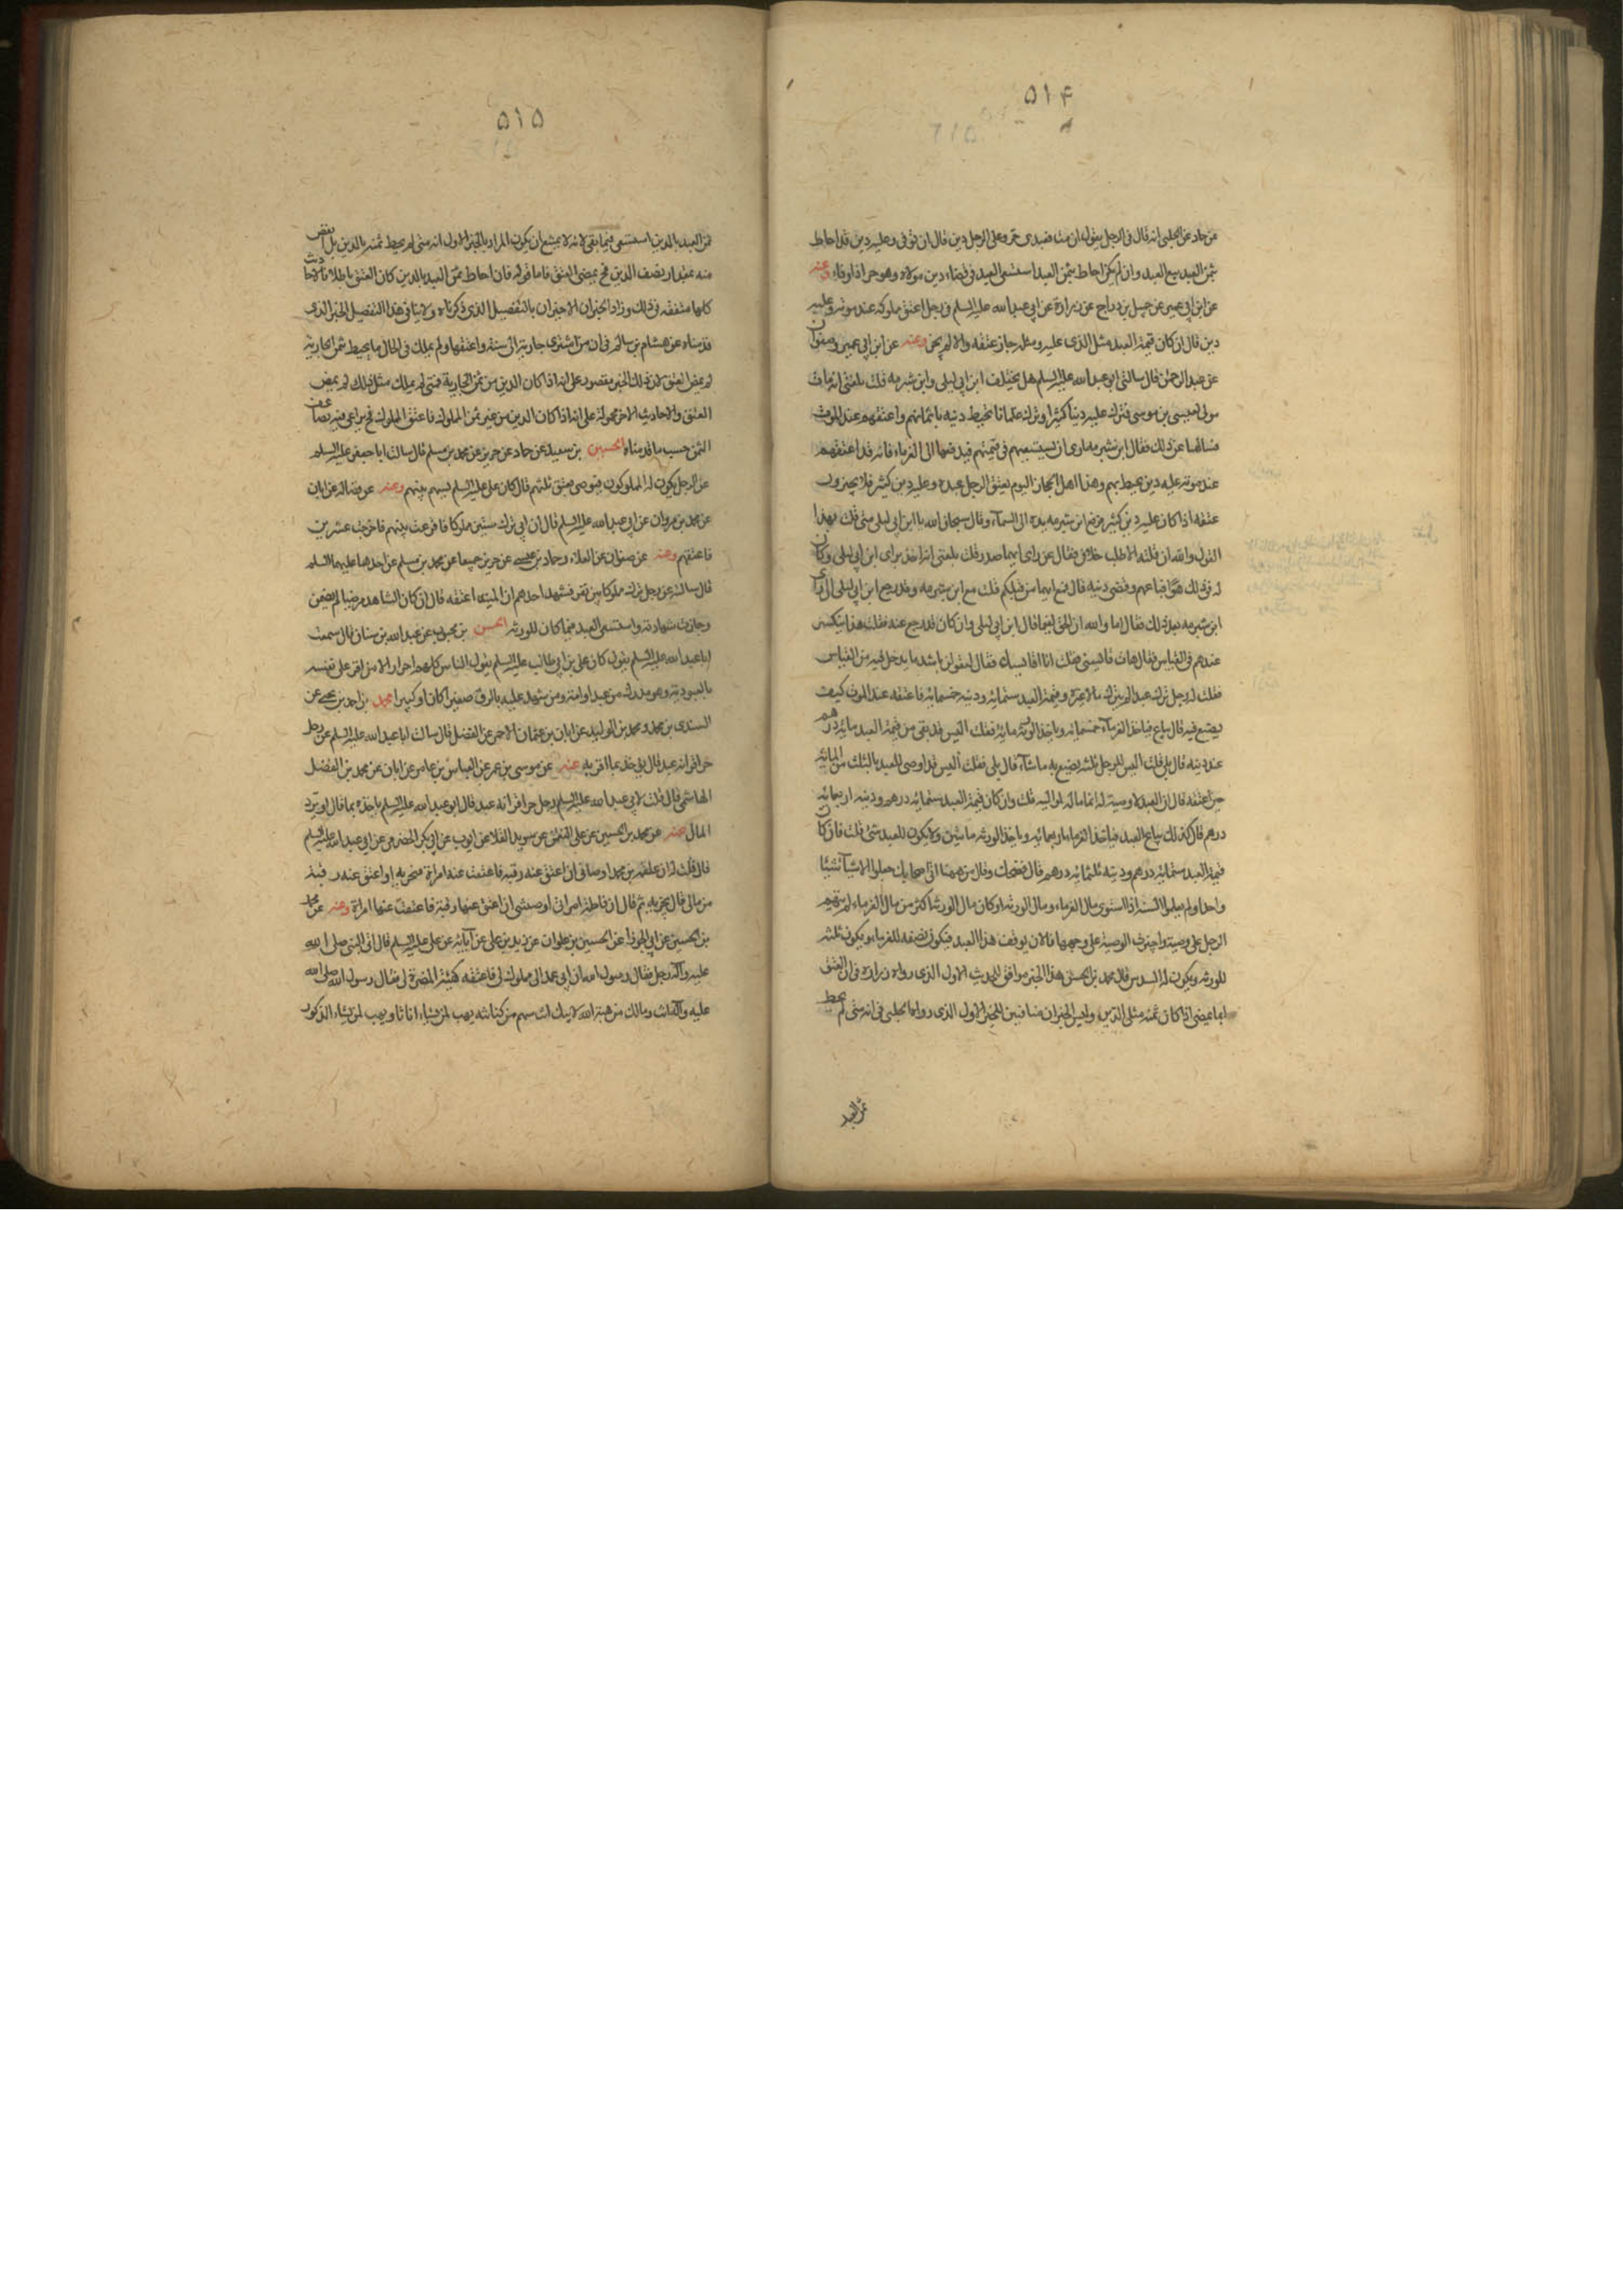 ۵۱۴
عن حماد عن الحلبي انه قال في الرجل يقول ان مت فعبدي حر وعلى الرجل دين قال ان توفى وعليه دين قد احاط
بثمن العبد بيع العبد وان لم يكن احاط بثمن العبد استسعى العبد في قضاء دين مولاه وهو حر اذا وفاه وعنه
عن ابن ابي عمير عن جميل بن دراج عن زرارة عن ابي عبد الله عليه السلم في رجل اعتق مملوكه عند موته وعليه
دين قال ان كان قيمة العبد مثل الذي عليه ومثله جاز عتقه والا لم يجز وعنه عن ابن ابي عمير وصفوان
عن عبد الرحمن قال سالني ابو عبد الله عليه السلم هل يختلف ابن ابي ليلى وابن شبرمه قلت بلغني انه مات
مولى لعيسى بن موسى فترك عليه دينا كثيرا وترك غلمانا تحيط دينه باثمانهم واعتقهم عند الموت
فسالهما عن ذلك فقال ابن شبرمه ارى ان يستسعيهم في قيمتهم فيدفعها الى الغرماء فانه قد اعتقهم
عند موته عليه دين يحيط بهم وهذا اهل الحجاز اليوم يعتق الرجل عبده وعليه دين كثير فلا يجيزون
عتقه اذا كان عليه دين كثير فرفع ابن شبرمه يده الى السمآء وقال سبحان الله يا ابن ابي ليلى متى قلت بهذا
القول والله ان قلته الا طلب خلافي فقال عن راى ايهما صدر قلت بلغني انه اخذ براى ابن ابي ليلى وكان
له في ذلك هوًى فباعهم وقضى دينه قال فمع ايهما من قبلكم قلت مع ابن شبرمه وقد رجع ابن ابي ليلى الى راى
ابن شبرمه بعد ذلك فقال اما والله ان الحق لفيما قال ابن ابي ليلى وان كان قد رجع عنه فقلت هذا ينكسر
عندهم في القياس فقال هات قايسني فقلت انا اقايسك فقال لتقولن باشد ما يدخل فيه من القياس
فقلت له رجل ترك عبدا لم يترك مالا غيره وقيمة العبد ستمائه ودينه خمسمائه فاعتقه عند الموت كيف
يصنع فيه قال يباع فياخذ الغرمآء خمسمائه وياخذ الورثه مائه فقلت اليس قد بقى من قيمة العبد مائه درهم
عن دينه قال بلى قلت اليس للرجل ثلثه يصنع به ماشآء قال بلى فقلت أليس قد اوصى للعبد بالثلث من المائه
حين اعتقه قال ان العبد لا وصيته له انما ماله لمواليه قلت وان كان قيمة العبد ستمائه درهم ودينه اربعمائه
درهم قال كذلك يباع العبد فياخذ الغرماء اربعمائه وياخذ الورثه مائتين ولا يكون للعبد شئ قلت فان كان
قيمة العبد ستمائه درهم ودينه ثلثمائه درهم قال فضحك وقال من ههنا اتى اصحابك جعلوا الاشيآء شيئا
واحدا ولم يعلموا السنه اذا استوى مال الغرماء ومال الورثه او كان مال الورثه اكثر من مال الغرماء لم يتهم
الرجل على وصيته واجيزت الوصية على وجهها فالان يوقف هذا العبد فيكون نصفه للغرماء ويكون ثلثه
للورثه ويكون له السدس قال محمد بن الحسن هذا الخبر موافق للحديث الاول الذي رواه زرارة في ان العتق
انما يمضى اذا كان ثمنه مثلى الدين وليس الخبران منافيين للخبر الاول الذي رواه الحلبي في انه متى لم يحط
ثمن العبد
۵۱۵
ثمن العبد بالدين استسعى فيما بقى لانه لا يمتنع ان يكون المراد بالخبر الاول انه متى لم يحط ثمنه بالدين بل ينقص
منه بمقدار نصف الدين فح يمضى العتق فاما قوله فان احاط ثمن العبد بالدين كان العتق باطلا فالاحاديث
كلها متفقه في ذلك وزاد الخبران الاخيران بالتفصيل الذي ذكرناه ولا ينافي هذا التفصيل الخبر الذي
قدمناه عن هشام بن سالم في ان من اشترى جارية الى سنة واعتقها ولم يملك في الحال ما يحيط بثمن الجارية
لم يمض العتق لان ذلك الخبر مقصور على انه اذا كان الدين من ثمن الجارية فمتى لم يملك مثل ذلك لم يمض
العتق والاحاديث الاخر محمولة على انه اذا كان الدين من غير ثمن المملوك فاعتق المملوك فح يراعى فيه تضاعف
الثمن حسب ما قدمناه الحسين بن سعيد عن حماد عن حريز عن محمد بن مسلم قال سالت ابا جعفر عليه السلم
عن الرجل يكون له المملوكون فيوصى بعتق ثلثهم قال كان علي عليه السلم يسهم بينهم وعنه عن فضاله عن ابان
عن محمد بن مروان عن ابي عبد الله عليه السلم قال ان ابي ترك ستين مملوكا فاقرعت بينهم فاخرجت عشرين
فاعتقتهم وعنه عن صفوان عن العلاء وحماد بن عيسى عن حريز جميعا عن محمد بن مسلم عن احدهما عليهما السلم
قال سالته عن رجل ترك مملوكا بين نفر فشهد احدهم ان الميت اعتقه قال ان كان الشاهد مرضيا لم يضمن
وجازت شهادته واستسعى العبد فيما كان للورثه الحسن بن محبوب عن عبد الله بن سنان قال سمعت
ابا عبد الله عليه السلم يقول كان علي بن ابي طالب عليه السلم يقول الناس كلهم احرار الا من اقر على نفسه
بالعبودية وهو مدرك من عبد او امة ومن شهد عليه بالرق صغيرا كان او كبيرا محمد بن احمد بن يحيى عن
السندي بن محمد ومحمد بن الوليد عن ابان بن عثمان الاحمر عن الفضل قال سالت ابا عبد الله عليه السلم عن رجل
حر اقر انه عبد قال يؤخذ بما اقر به عنه عن موسى بن عمر عن العباس بن عامر عن ابان عن محمد بن الفضل
الهاشمي قال قلت لابي عبد الله عليه السلم رجل حر اقر انه عبد قال ابو عبد الله عليه السلم ياخذه بما قال او يرد
المال عنه عن محمد بن الحسين عن علي بن النعمان عن سويد القلا عن ايوب عن ابي بكر الحضرمي عن ابي عبد الله عليه السلم
قال قلت له ان علقمه بن محمد اوصاني ان اعتق عنه رقبه فاعتقت عنه امراة فتجزيه او اعتق عنه رقبة
من مالي قال يجزيه ثم قال ان فاطمة امراتي اوصتني ان اعتق عنها رقبة فاعتقت عنها امراة وعنه عن محمد
بن الحسين عن ابي الجوزا عن الحسين بن علوان عن زيد بن علي عن آبائه عن علي عليه السلم قال اتى النبي صلى الله
عليه وآله رجل فقال رسول الله ان ابي عمد الى مملوك لي فاعتقه كهيئة المضرة لي فقال رسول الله صلى الله
عليه وآله انت ومالك من هبة الله لابيك انت سهم من كنانته يهب لمن يشاء اناثا ويهب لمن يشاء الذكور